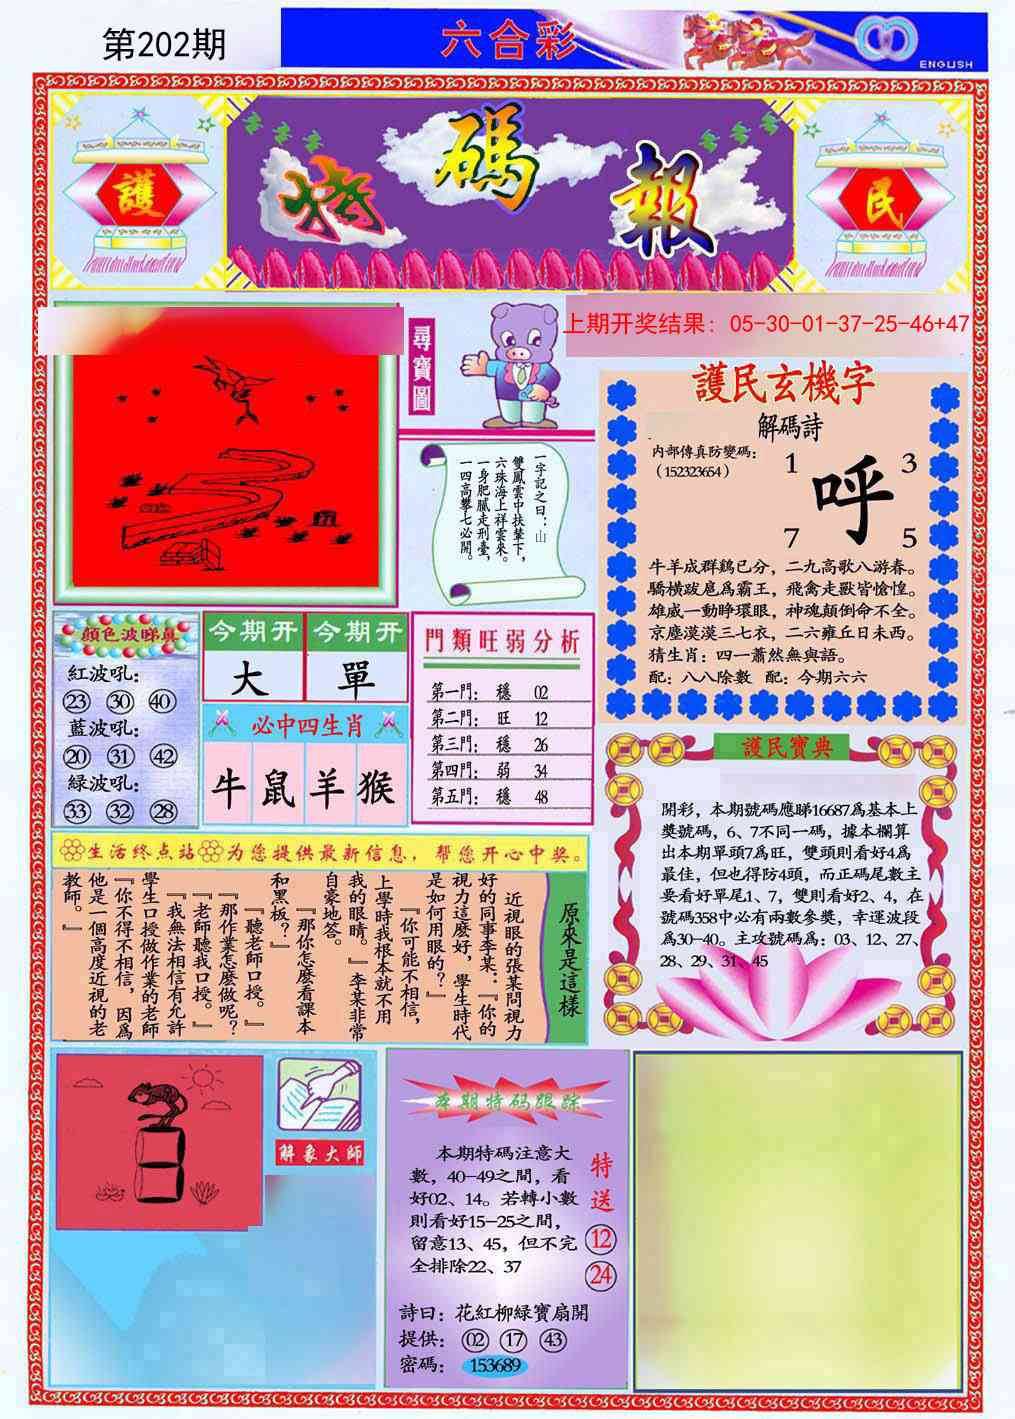 第202期
六合彩
ENGLISH
護
特碼報
民
尋寶圖
上期开奖结果：05-30-01-37-25-46+47
一字記之曰：山
雙鳳雲中扶輦下，
六珠海上祥雲來。
一身肥膩走刑臺，
一四高攀七必開。
護民玄機字
解碼詩
内部傳真防變碼：
（152323654）
1
3
呼
7
5
牛羊成群鷄已分，二九高歌八游春。
驕橫跋扈爲霸王，飛禽走獸皆愴惶。
雄威一動睁環眼，神魂顛倒命不全。
京塵漠漠三七衣，二六雍丘日未西。
猜生肖：四一蕭然無與語。
配：八八除數 配：今期六六
顔色波睇真
紅波吼：
23 30 40
藍波吼：
20 31 42
緑波吼：
33 32 28
今期开 今期开
大 單
必中四生肖
牛 鼠 羊 猴
門類旺弱分析
第一門： 穩 02
第二門： 旺 12
第三門： 穩 26
第四門： 弱 34
第五門： 穩 48
護民寶典
開彩，本期號碼應睇16687爲基本上
獎號碼，6、7不同一碼，據本欄算
出本期單頭7爲旺，雙頭則看好4爲
最佳，但也得防4頭，而正碼尾數主
要看好單尾1、7，雙則看好2、4，在
號碼358中必有兩數參獎，幸運波段
爲30-40。主攻號碼爲：03、12、27、
28、29、31、45
生活终点站 为您提供最新信息，帮您开心中奖。
原來是這樣
近視眼的張某問視力
好的同事李某：『你的
視力這麼好，學生時代
是如何用眼的？』
『你可能不相信，
上學時我根本就不用
我的眼睛。』李某非常
自豪地答。
『那你怎麽看課本
和黑板？』
『聽老師口授。』
『那作業怎麽做呢？
『老師聽我口授。』
『我無法相信有允許
學生口授做作業的老師
『你不得不相信，因爲
他是一個高度近視的老
教師。』
解象大師
本期特码跟踪
本期特碼注意大
數，40-49之間，看
好02、14。若轉小數
則看好15-25之間，
留意13、45，但不完
全排除22、37
特送
12
24
詩曰：花紅柳緑寶扇開
提供： 02 17 43
密碼： 153689